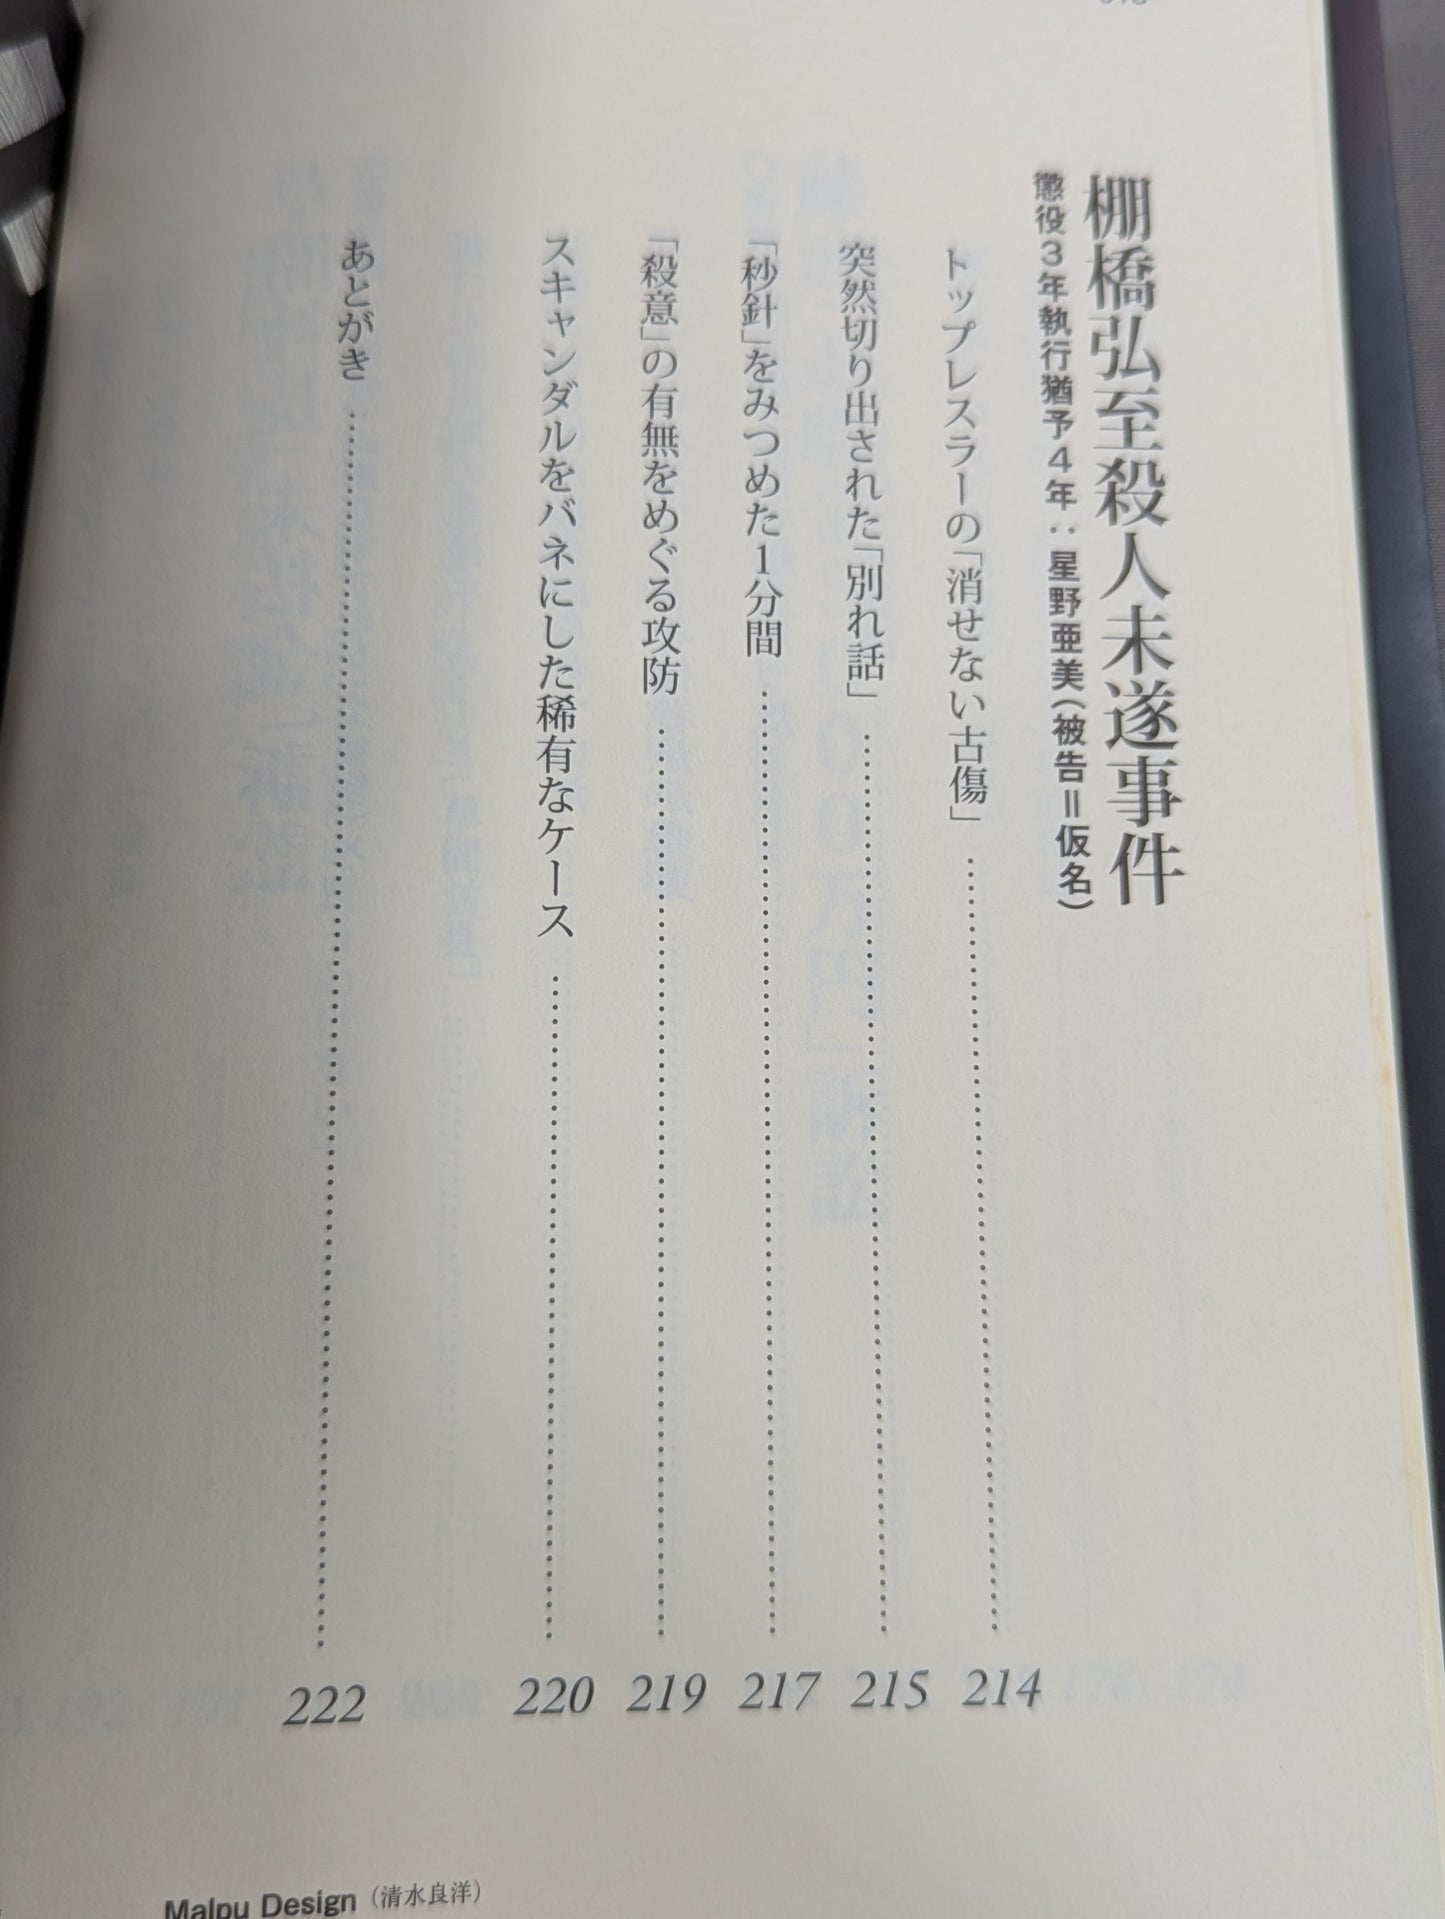 棚橋弘至殺人未遂事件
懲役3年執行猶予4年：星野亜美（被告＝仮名）
トップレスラーの「消せない古傷」…………214
突然切り出された「別れ話」…………215
「秒針」をみつめた1分間…………217
「殺意」の有無をめぐる攻防…………219
スキャンダルをバネにした稀有なケース…………220
あとがき…………222
Malpu Design（清水良洋）